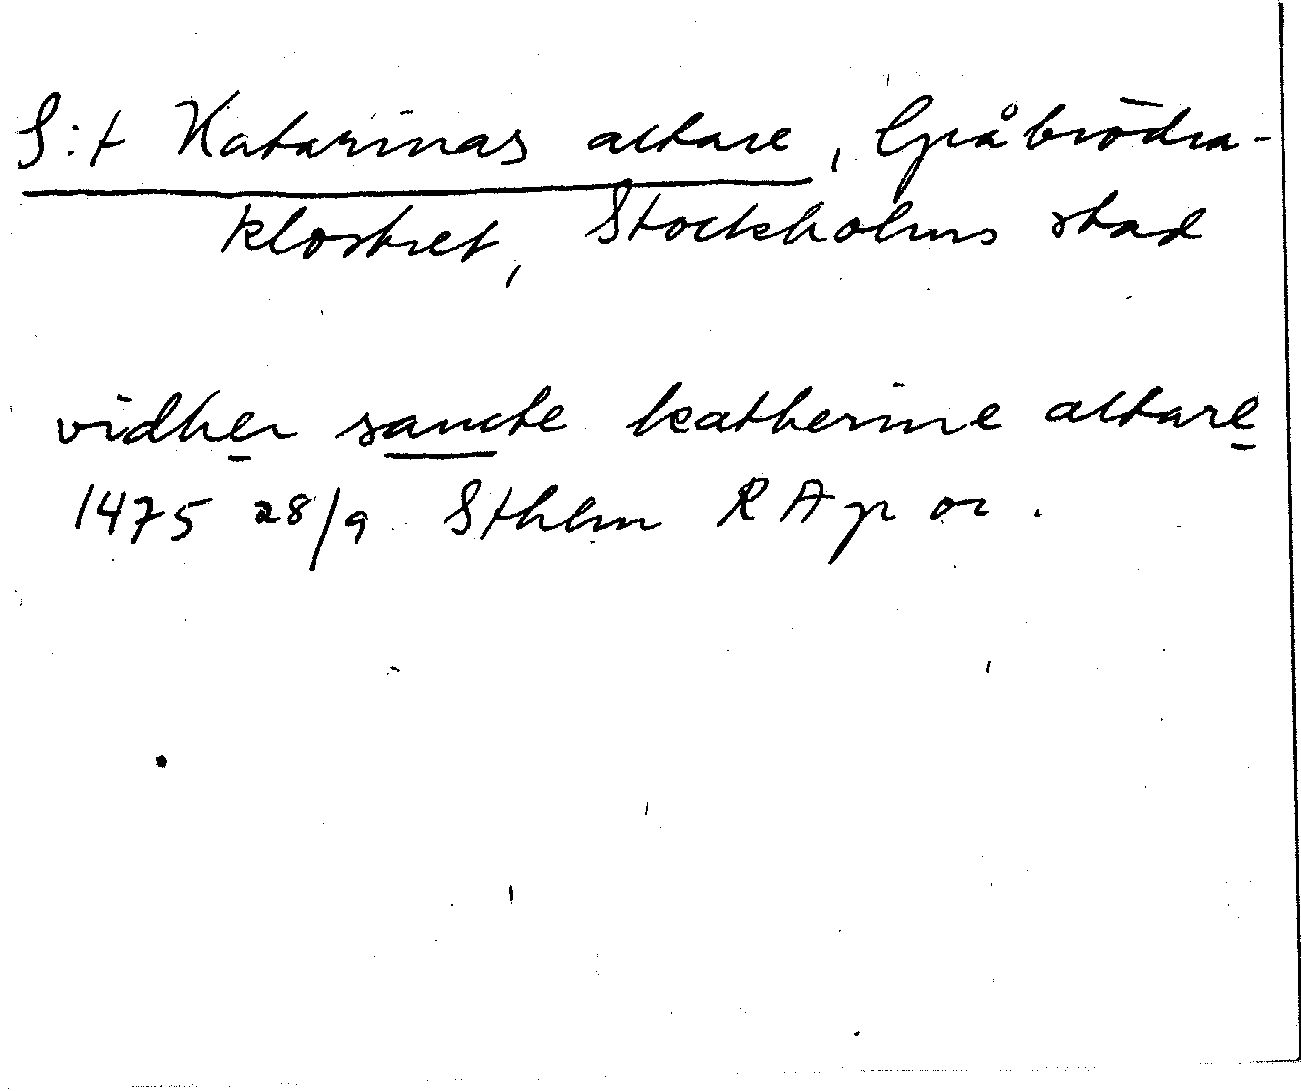 S:t Katarinas altare, Gråbrödra-
klostret, Stockholms stad
vidher sancte katherine altare
1475 28/9 Sthlm RAp or.